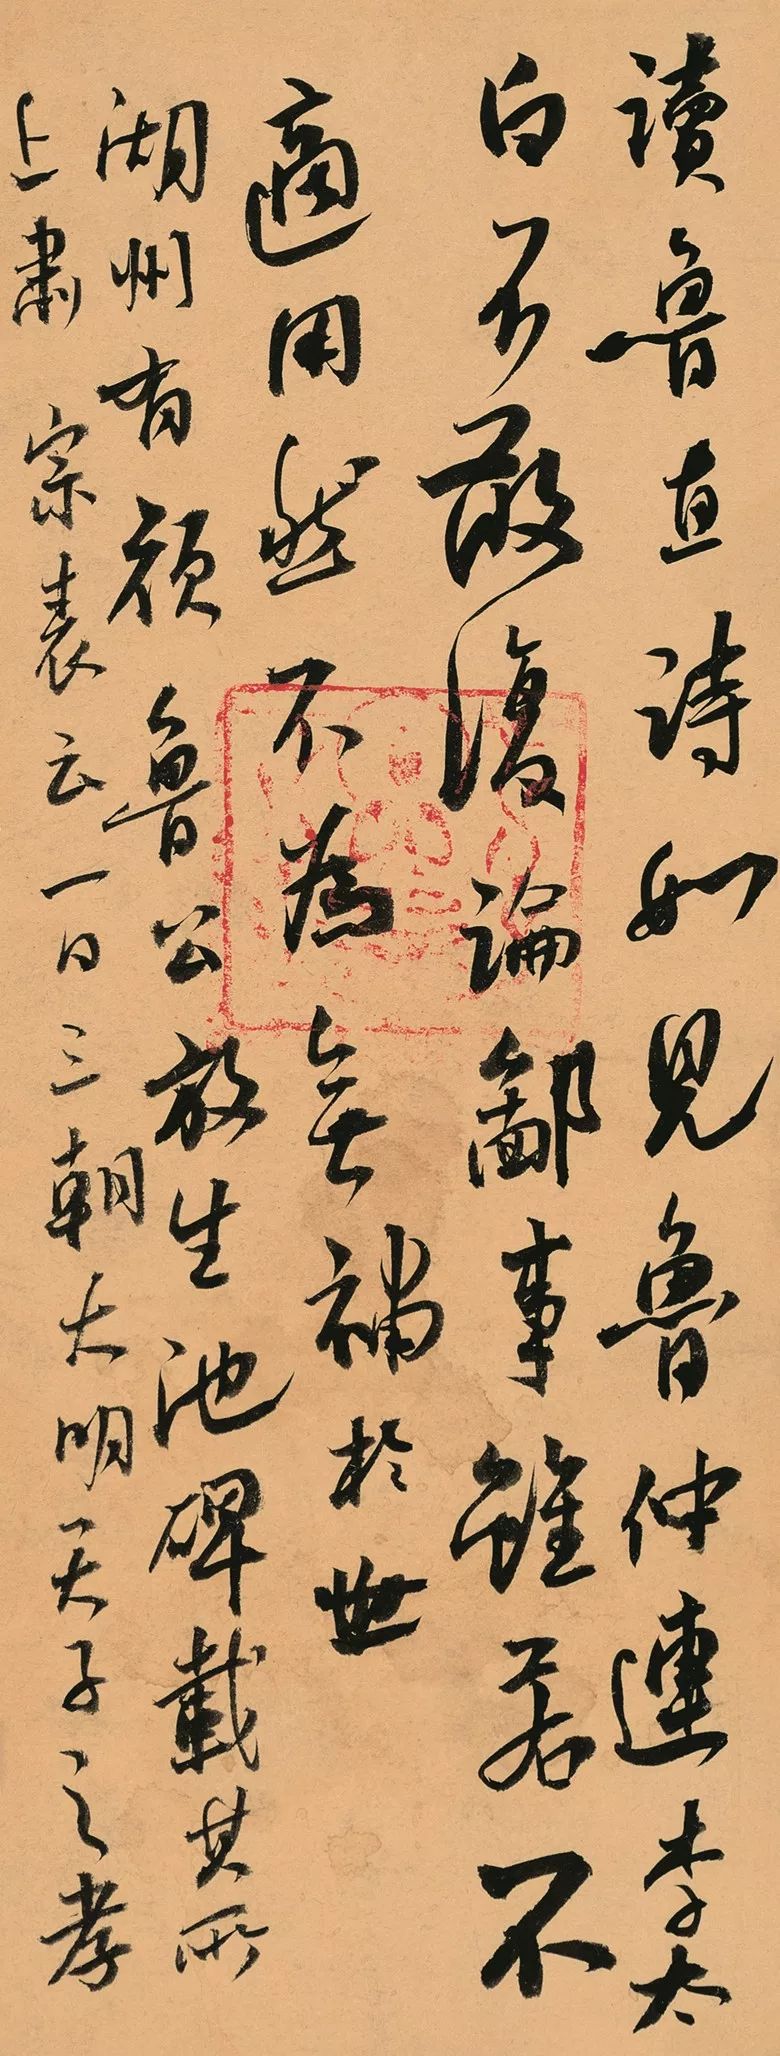 讀魯直詩如見魯仲連李太
白不敢復論鄙事雖若不
適用然不為無補於世
湖州有顏魯公放生池碑載其所
上肅宗表云一日三朝大明天子之孝